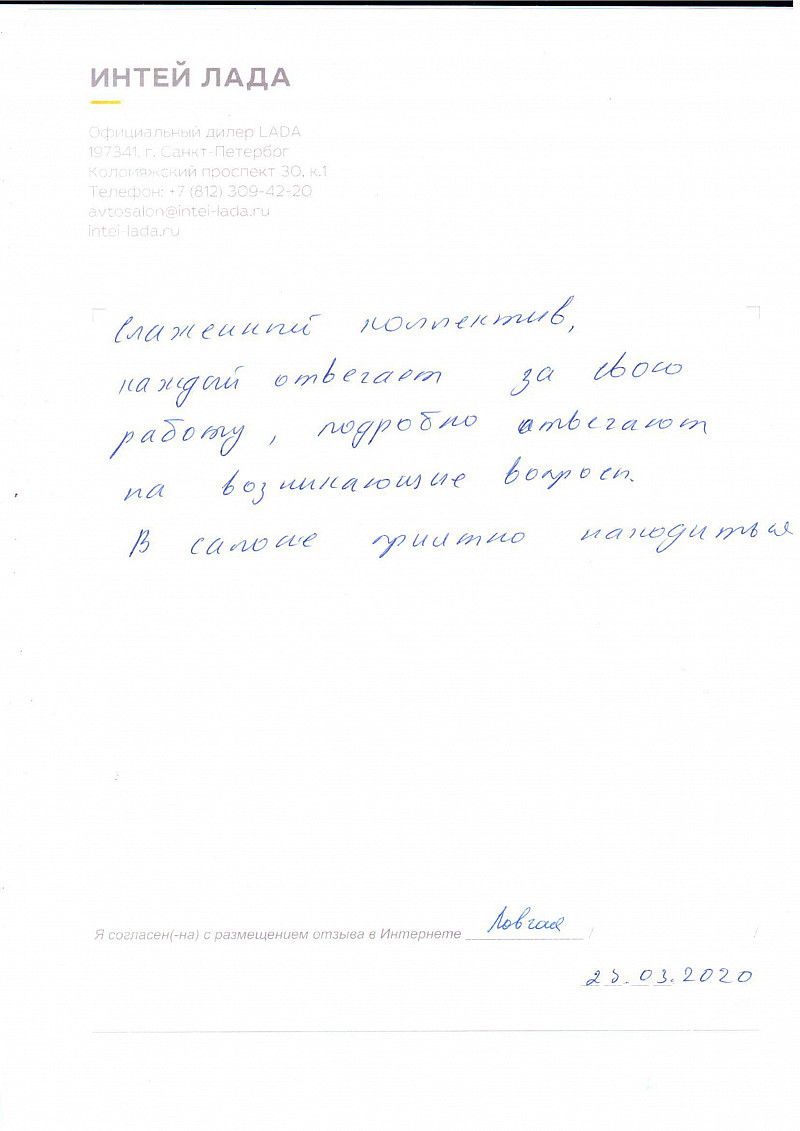 ИНТЕЙ ЛАДА
Официальный дилер LADA
197341, г. Санкт-Петербог
Коломяжский проспект 30, к.1
Телефон: +7 (812) 309-42-20
avtosalon@intei-lada.ru
intei-lada.ru
Слаженный коллектив,
каждый отвечает за свою
работу, подробно отвечают
на возникающие вопросы.
В салоне приятно находиться
Я согласен(-на) с размещением отзыва в Интернете Ловгая / /
25.03.2020